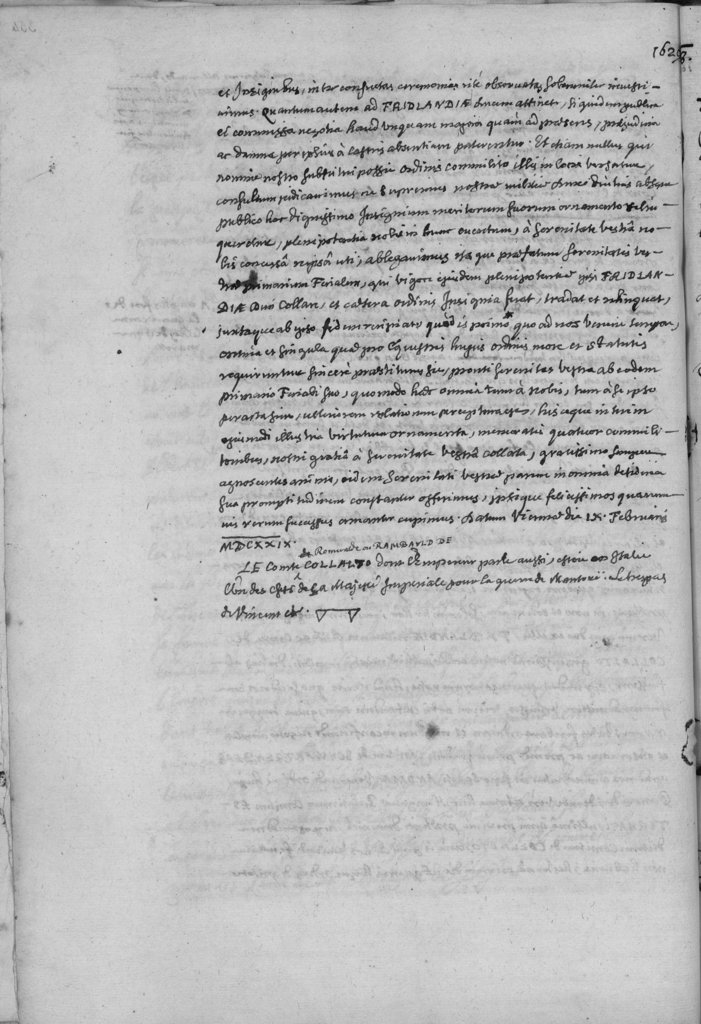 1628.
et Insignibus, inter consuetas ceremonias ritè observatas solemniter investi-
vimus. Quantum autem ad FRIDLANDIÆ ducem attinet, si quidem publica
ei commissa negotia haud unquam majora quam ad præsens, præjudicia
ac damna per ipsius à castris absentiam paterentur. Et etiam nullus qui
nomine nostro substitui possit ordinis commilito illis in locis versatur,
consultum judicavimus ne supremus nostræ militiæ dux diutius absque
publico hoc dignissimo Insignium meritorum suorum ornamento relin
queretur, plenipotentia nobis in hunc eventum, à serenitate vestra no-
bis concessa uti, ablegavimus eaque præfatum serenitatis ves-
træ primarium Fecialem, qui vigore ejusdem plenipotentiæ ipsi FRIDLAN-
DIÆ Duci Collare, et cætera ordinis Insignia ferat, tradat et relinquat,
juxtaque ab ipso fidem recipiat quod is primo quo ad nos veniet tempore,
omnia et singula quæ pro Equestris hujus ordinis more et statutis
requiruntur sincerè præstiturus sit, prout serenitas vestra ab eodem
primario Feciali suo, quomodo hæc omnia tum à nobis, tum à se ipso
peracta sint, ulteriorem relationem perceptura est, his itaque in tuum
ejusmodi illustria virtutum ornamenta, memoratis quatuor commili-
tonibus, nostri gratia à serenitate vestra collata, gratissimo semper
agnoscentes animo, eidem serenitati vestræ parem in omnia desideria
sua promptitudinem constanter offerimus, ipsique felicissimos quarum
vis rerum successus amanter cupimus. Datum Viennæ die IX. Februarii
MDCXXIX.
de Romvald ou RAMBAULD DE
LE Comte COLLALTO dont l'Empereur parle aussi, estoit en Italie
l'un des chefs de Sa Majesté Imperiale pour la guerre de Mantoüe. Le trespas
de Vincent etc.